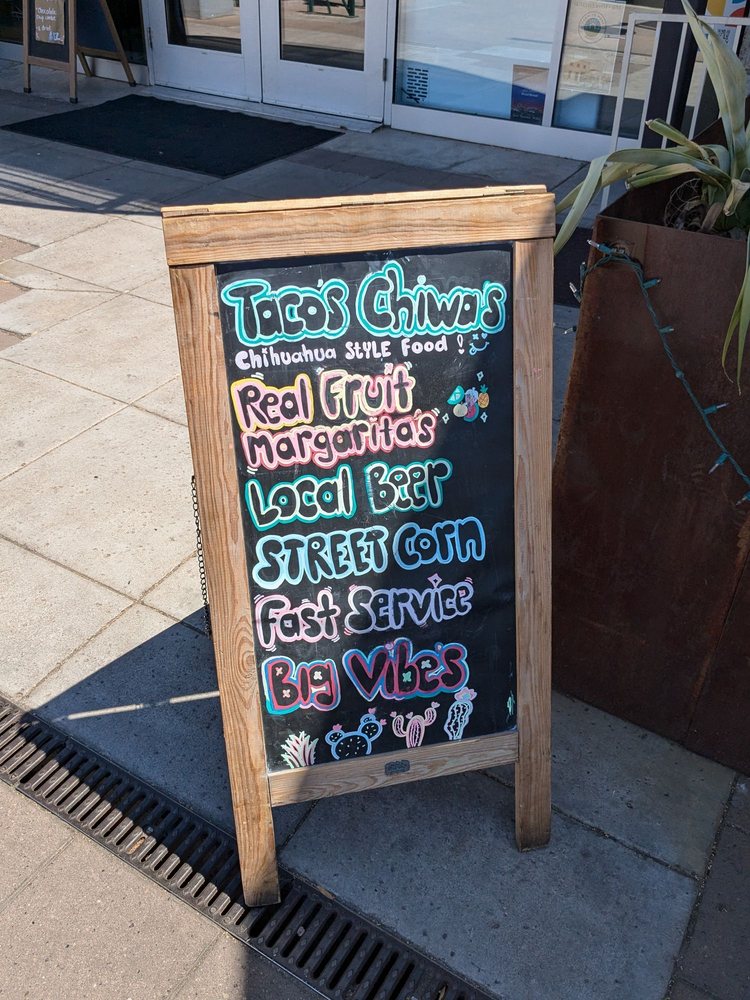 Taco's Chiwa's
Chihuahua STYLE Food !
Real Fruit
margarita's
Local Beer
STREET Corn
Fast Service
Big Vibe's